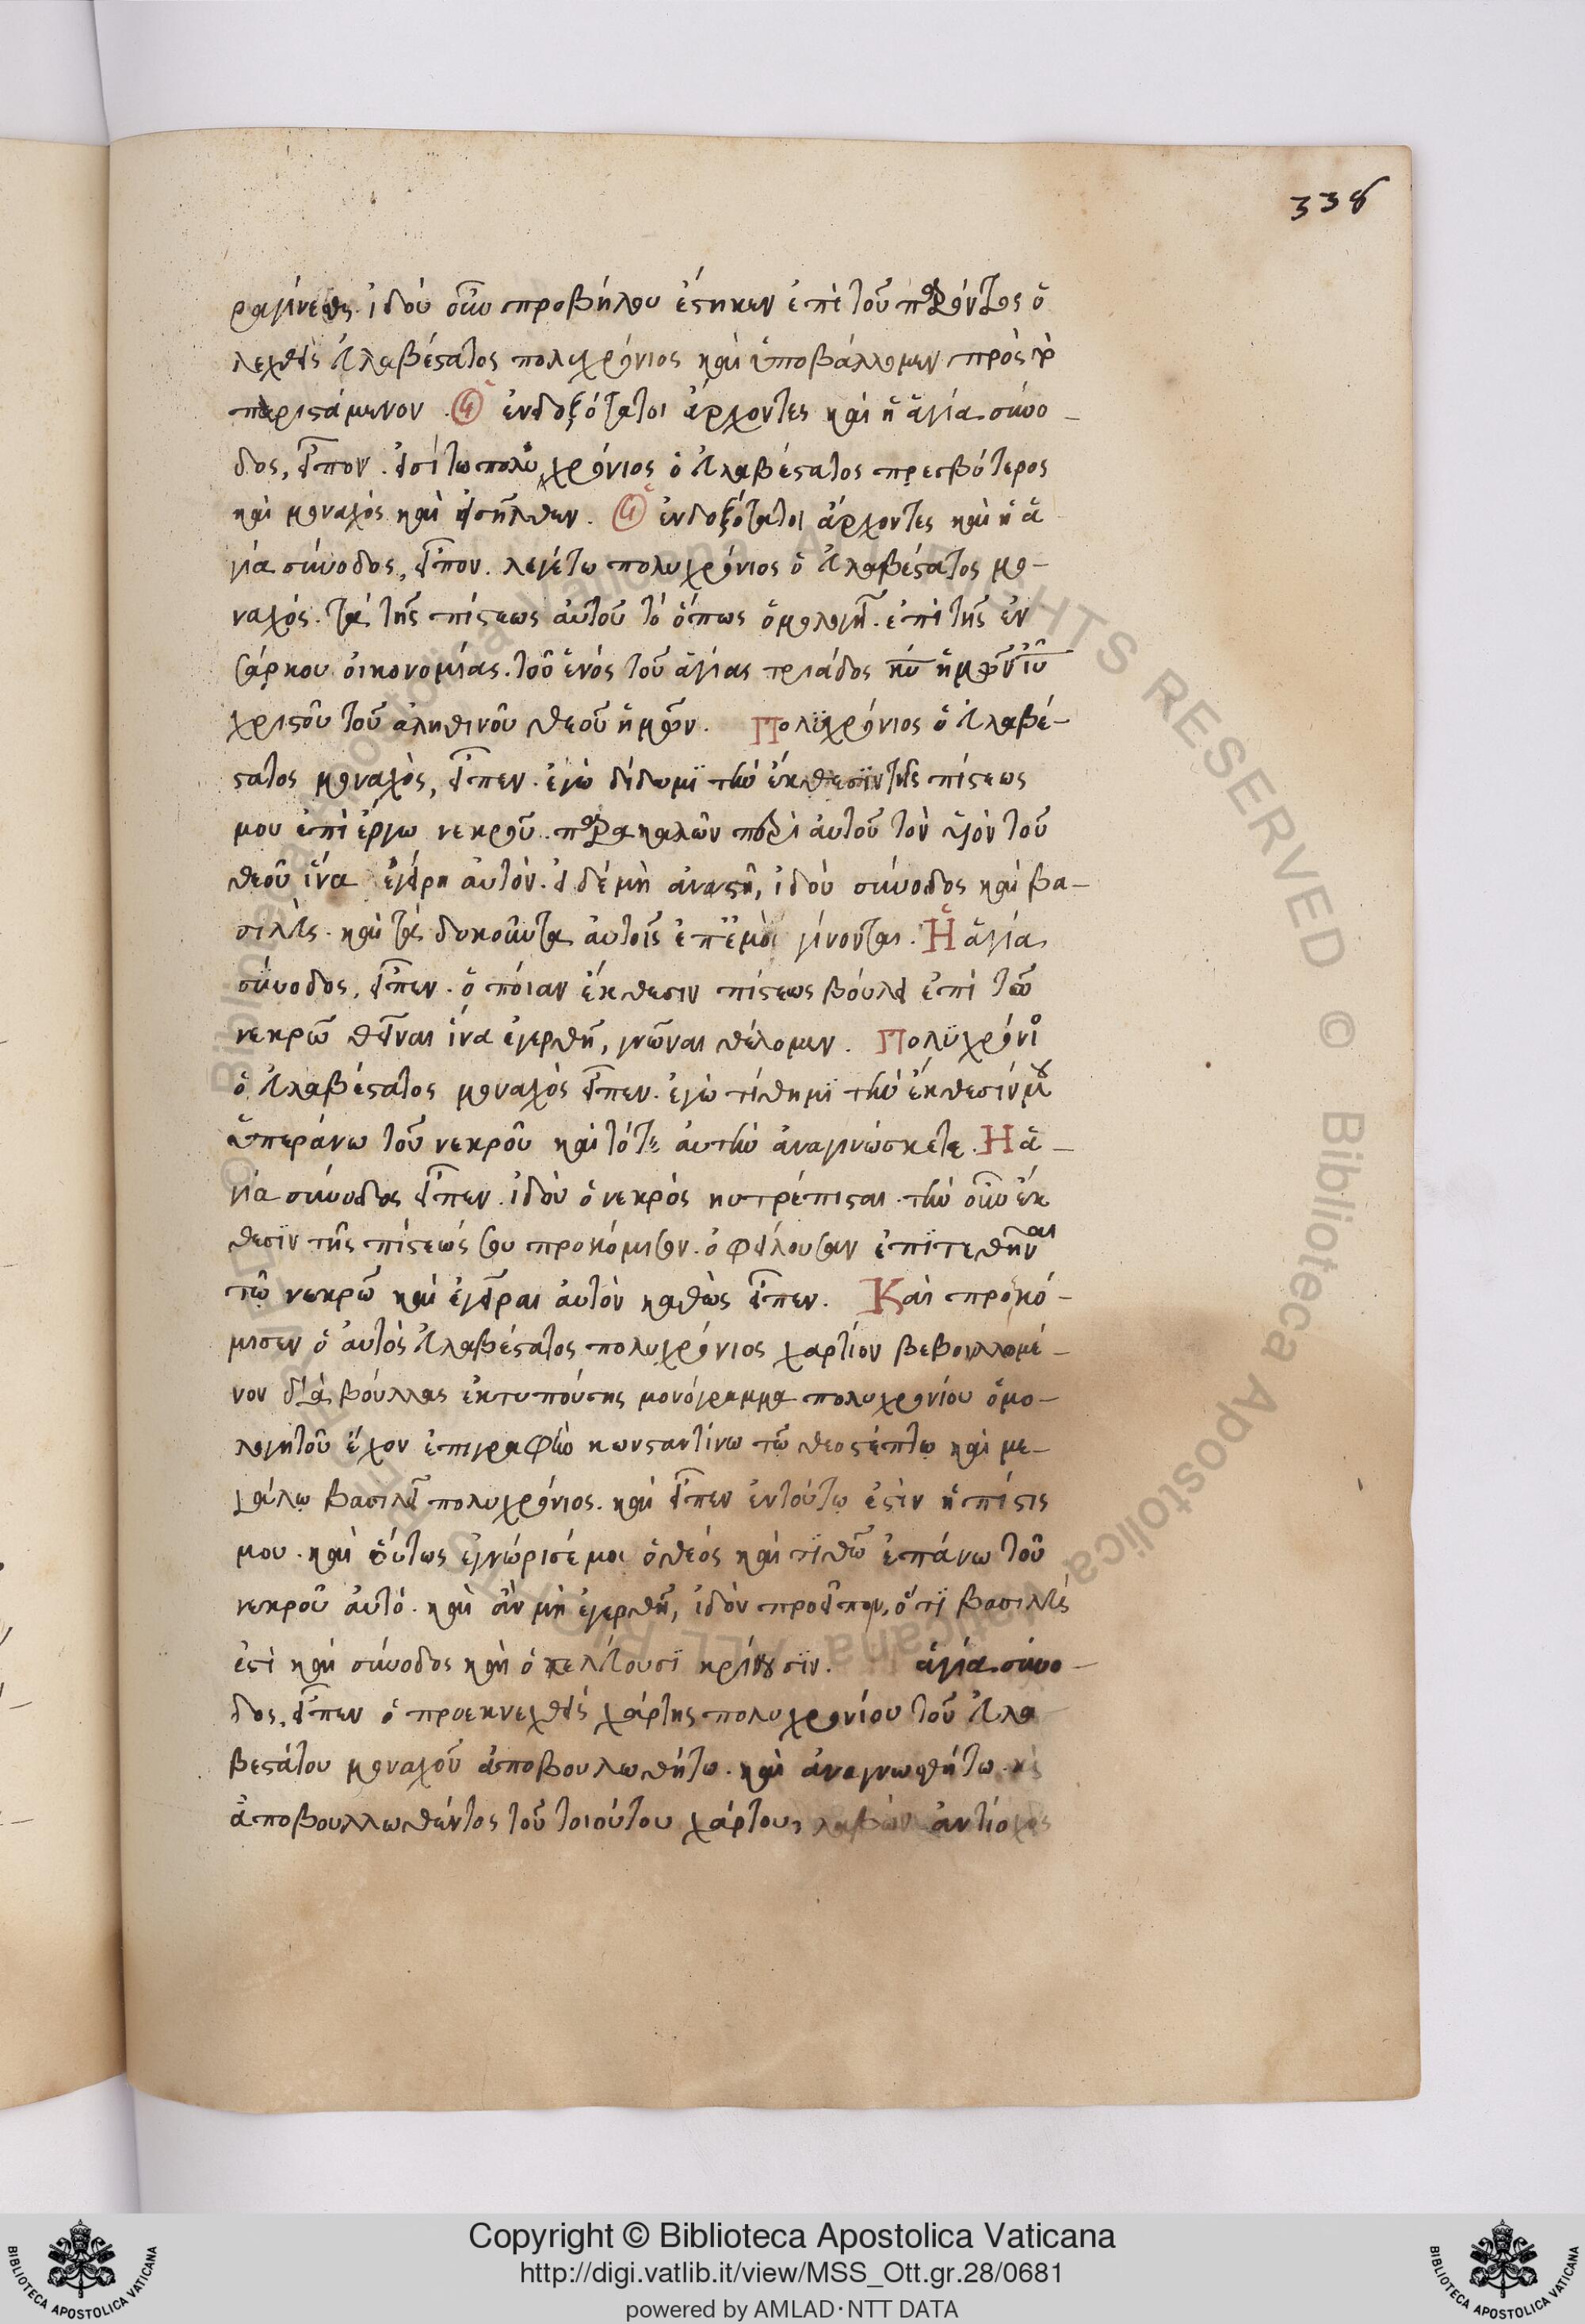 338
ραγίνεσθε. ἰδοὺ οὖν προβήλου ἔστηκεν ἐπὶ τοῦ παρόντος ὁ
λεχθεὶς ἁλαβέστατος πολυχρόνιος καὶ ὑποβάλλομεν πρὸς τὸ
παριστάμενον. οἱ ἐνδοξότατοι ἄρχοντες καὶ ἡ ἁγία σύνο-
δος, εἶπον. εἰσίτω πολυχρόνιος ὁ ἁλαβέστατος πρεσβύτερος
καὶ μοναχὸς καὶ εἰσῆλθεν. οἱ ἐνδοξότατοι ἄρχοντες καὶ ἡ ἁ
γία σύνοδος, εἶπον. λεγέτω πολυχρόνιος ὁ ἁλαβέστατος μο-
ναχός. τὰ τῆς πίστεως αὐτοῦ τὸ ὅπως ὁμολογῆ. ἐπὶ τῆς ἐν
σάρκου οἰκονομίας. τοῦ ἑνός τοῦ ἁγίας τριάδος κυ ἡμῶν ιυ
χριστοῦ τοῦ ἀληθινοῦ θεοῦ ἡμῶν. Πολϋχρόνιος ὁ ἁλαβέ-
στατος μοναχὸς, εἶπεν. ἐγὼ δίδωμϊ τὴν ἔκθεσϊν τῆς πίστεως
μου ἐπὶ ἔργω νεκροῦ. παρακαλῶν περὶ αὐτοῦ τὸν υἱὸν τοῦ
θεοῦ ἵνα ἐγείρη αὐτόν. εἰ δὲ μὴ ἀναστῆ, ἰδοὺ σύνοδος καὶ βα-
σιλεὺς. καὶ τὰ δοκοῦντα αὐτοῖς ἐπ' ἐμὸι γίνονται. Ἡ ἁγία
σύνοδος, εἶπεν. ὁ ποίαν ἔκθεσιν πίστεως βούλει ἐπὶ τῶ
νεκρῶ θεῖναι ἵνα ἐγερθῆ, γνῶναι θέλομεν. Πολϋχρόνιος
ὁ ἁλαβέστατος μοναχὸς εἶπεν. ἐγὼ τίθημϊ τὴν ἔκθεσίν μου
ὑπεράνω τοῦ νεκροῦ καὶ τότε αὐτὴν ἀναγινώσκετε. Ἡ ἁ-
γία σύνοδος εἶπεν. ἰδοὺ ὁ νεκρὸς ηυτρέπισται. τὴν οὖν ἔκ
θεσϊν τῆς πίστεώς σου προκόμισον. ὀφείλουσαν ἐπϊτεθῆναι
τῶ νεκρῶ καὶ ἐγεῖραι αὐτὸν καθὼς εἶπεν. Καὶ προκό-
μισεν ὁ αὐτὸς ἁλαβέστατος πολυχρόνιος χαρτίον βεβουλλωμέ-
νον διὰ βούλλας ἐκτυπούσης μονόγραμμα πολυχρονίου ὁμο-
λογητοῦ ἔχον ἐπιγραφὴν κωνσταντίνω τῶ θεοστέπτω καὶ με-
γάλω βασιλεῖ πολυχρόνιος. καὶ εἶπεν ἐν τούτω ἐστὶν ἡ πίστις
μου. καὶ οὕτως ἐγνώρισέ μοι ὁ θεός καὶ τϊθῶ ἐπάνω τοῦ
νεκροῦ αὐτό. καὶ ἂν μὴ ἐγερθῆ, ἰδοὺ προεῖπον, ὅτϊ βασιλεύς
ἐστὶ καὶ σύνοδος καὶ ὃ κελεύουσϊ κρίνουσϊν. ἁγία σύνο-
δος, εἶπεν ὁ προεκνεχθεὶς χάρτης πολυχρονίου τοῦ ἁλα
βεστάτου μοναχοῦ ἀποβουλωθήτω. καὶ ἀναγνωσθήτω. καὶ
ἀποβουλλωθέντος τοῦ τοιούτου χάρτου, λαβὼν ἀντίοχος
Copyright © Biblioteca Apostolica Vaticana
http://digi.vatlib.it/view/MSS_Ott.gr.28/0681
powered by AMLAD·NTT DATA